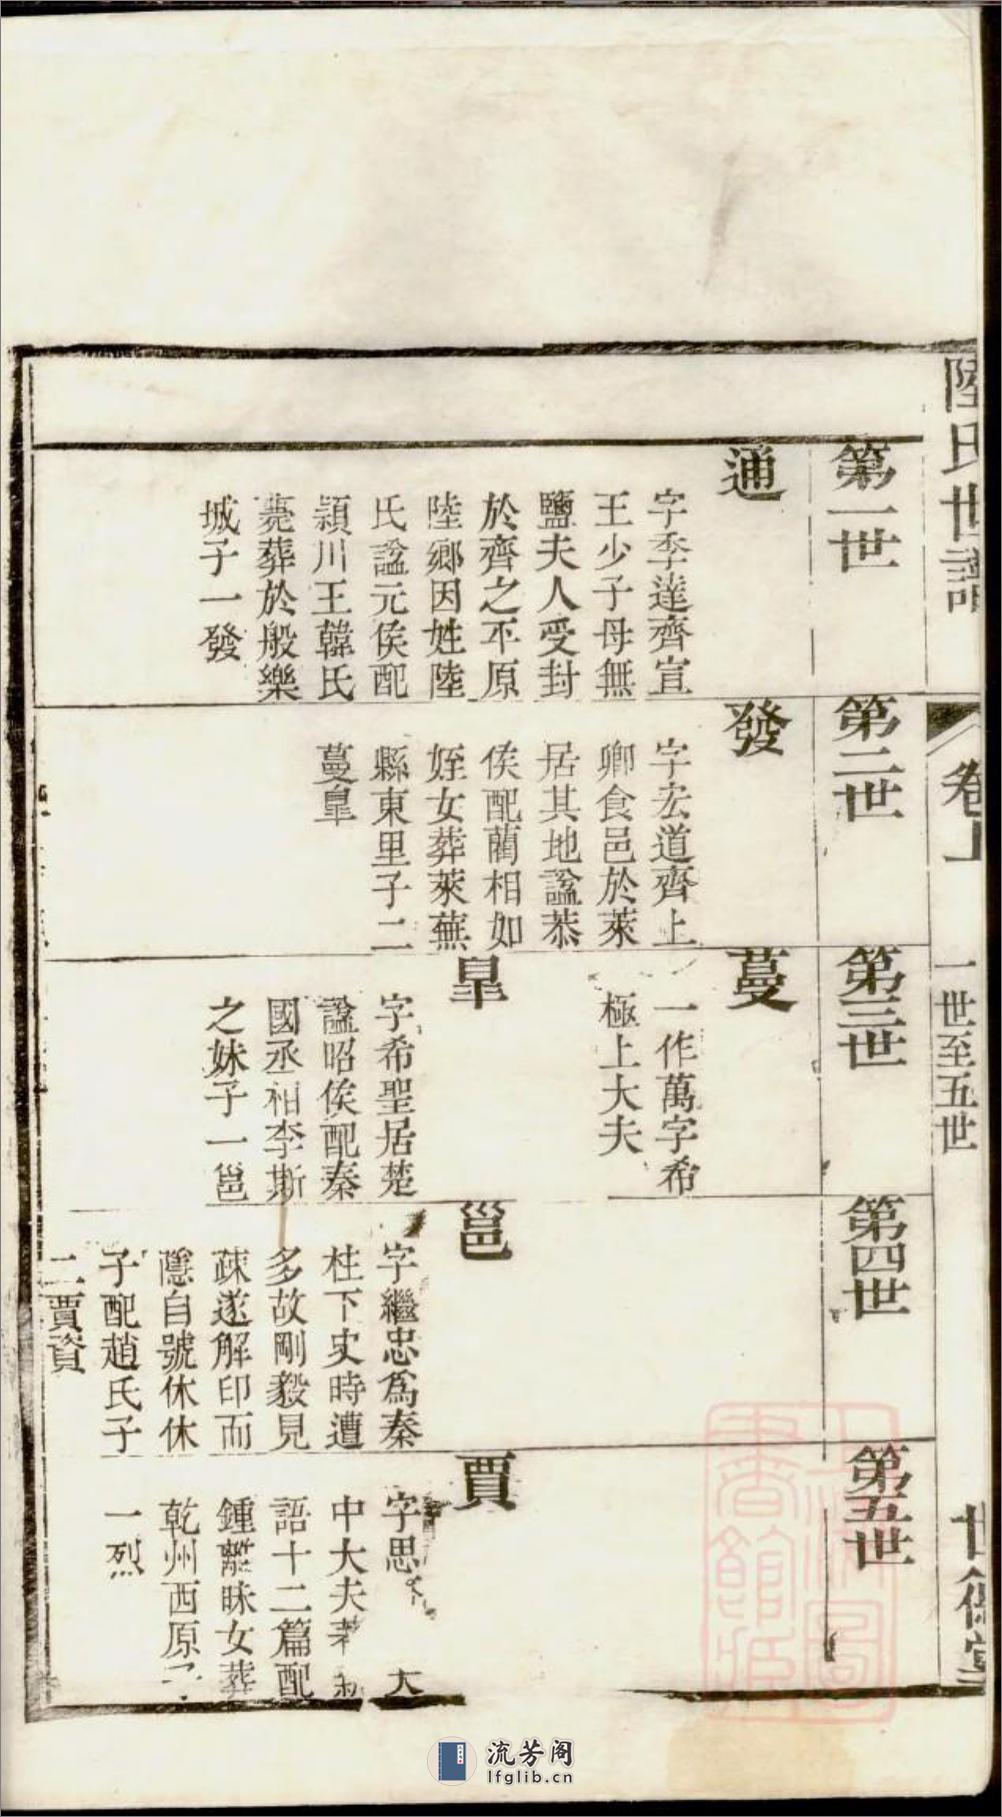 陸氏世譜
卷上
一世至五世
第一世
通
字季達齊宣
王少子母無
鹽夫人受封
於齊之平原
陸鄉因姓陸
氏諡元侯配
潁川王韓氏
薨葬於般樂
城子一發
第二世
發
字宏道齊上
卿食邑於萊
居其地諡恭
侯配藺相如
姪女葬萊蕪
縣東里子二
蔓皐
第三世
蔓
一作萬字希
極上大夫
皐
字希聖居楚
諡昭侯配秦
國丞相李斯
之妹子一邕
第四世
邕
字繼忠爲秦
柱下史時遭
多故剛毅見
疎遂解印而
隱自號休休
子配趙氏子
二賈資
第五世
賈
字思 大
中大夫
語十二篇配
鍾離昧女葬
乾州西原子
一烈
流芳阁
lfglib.cn